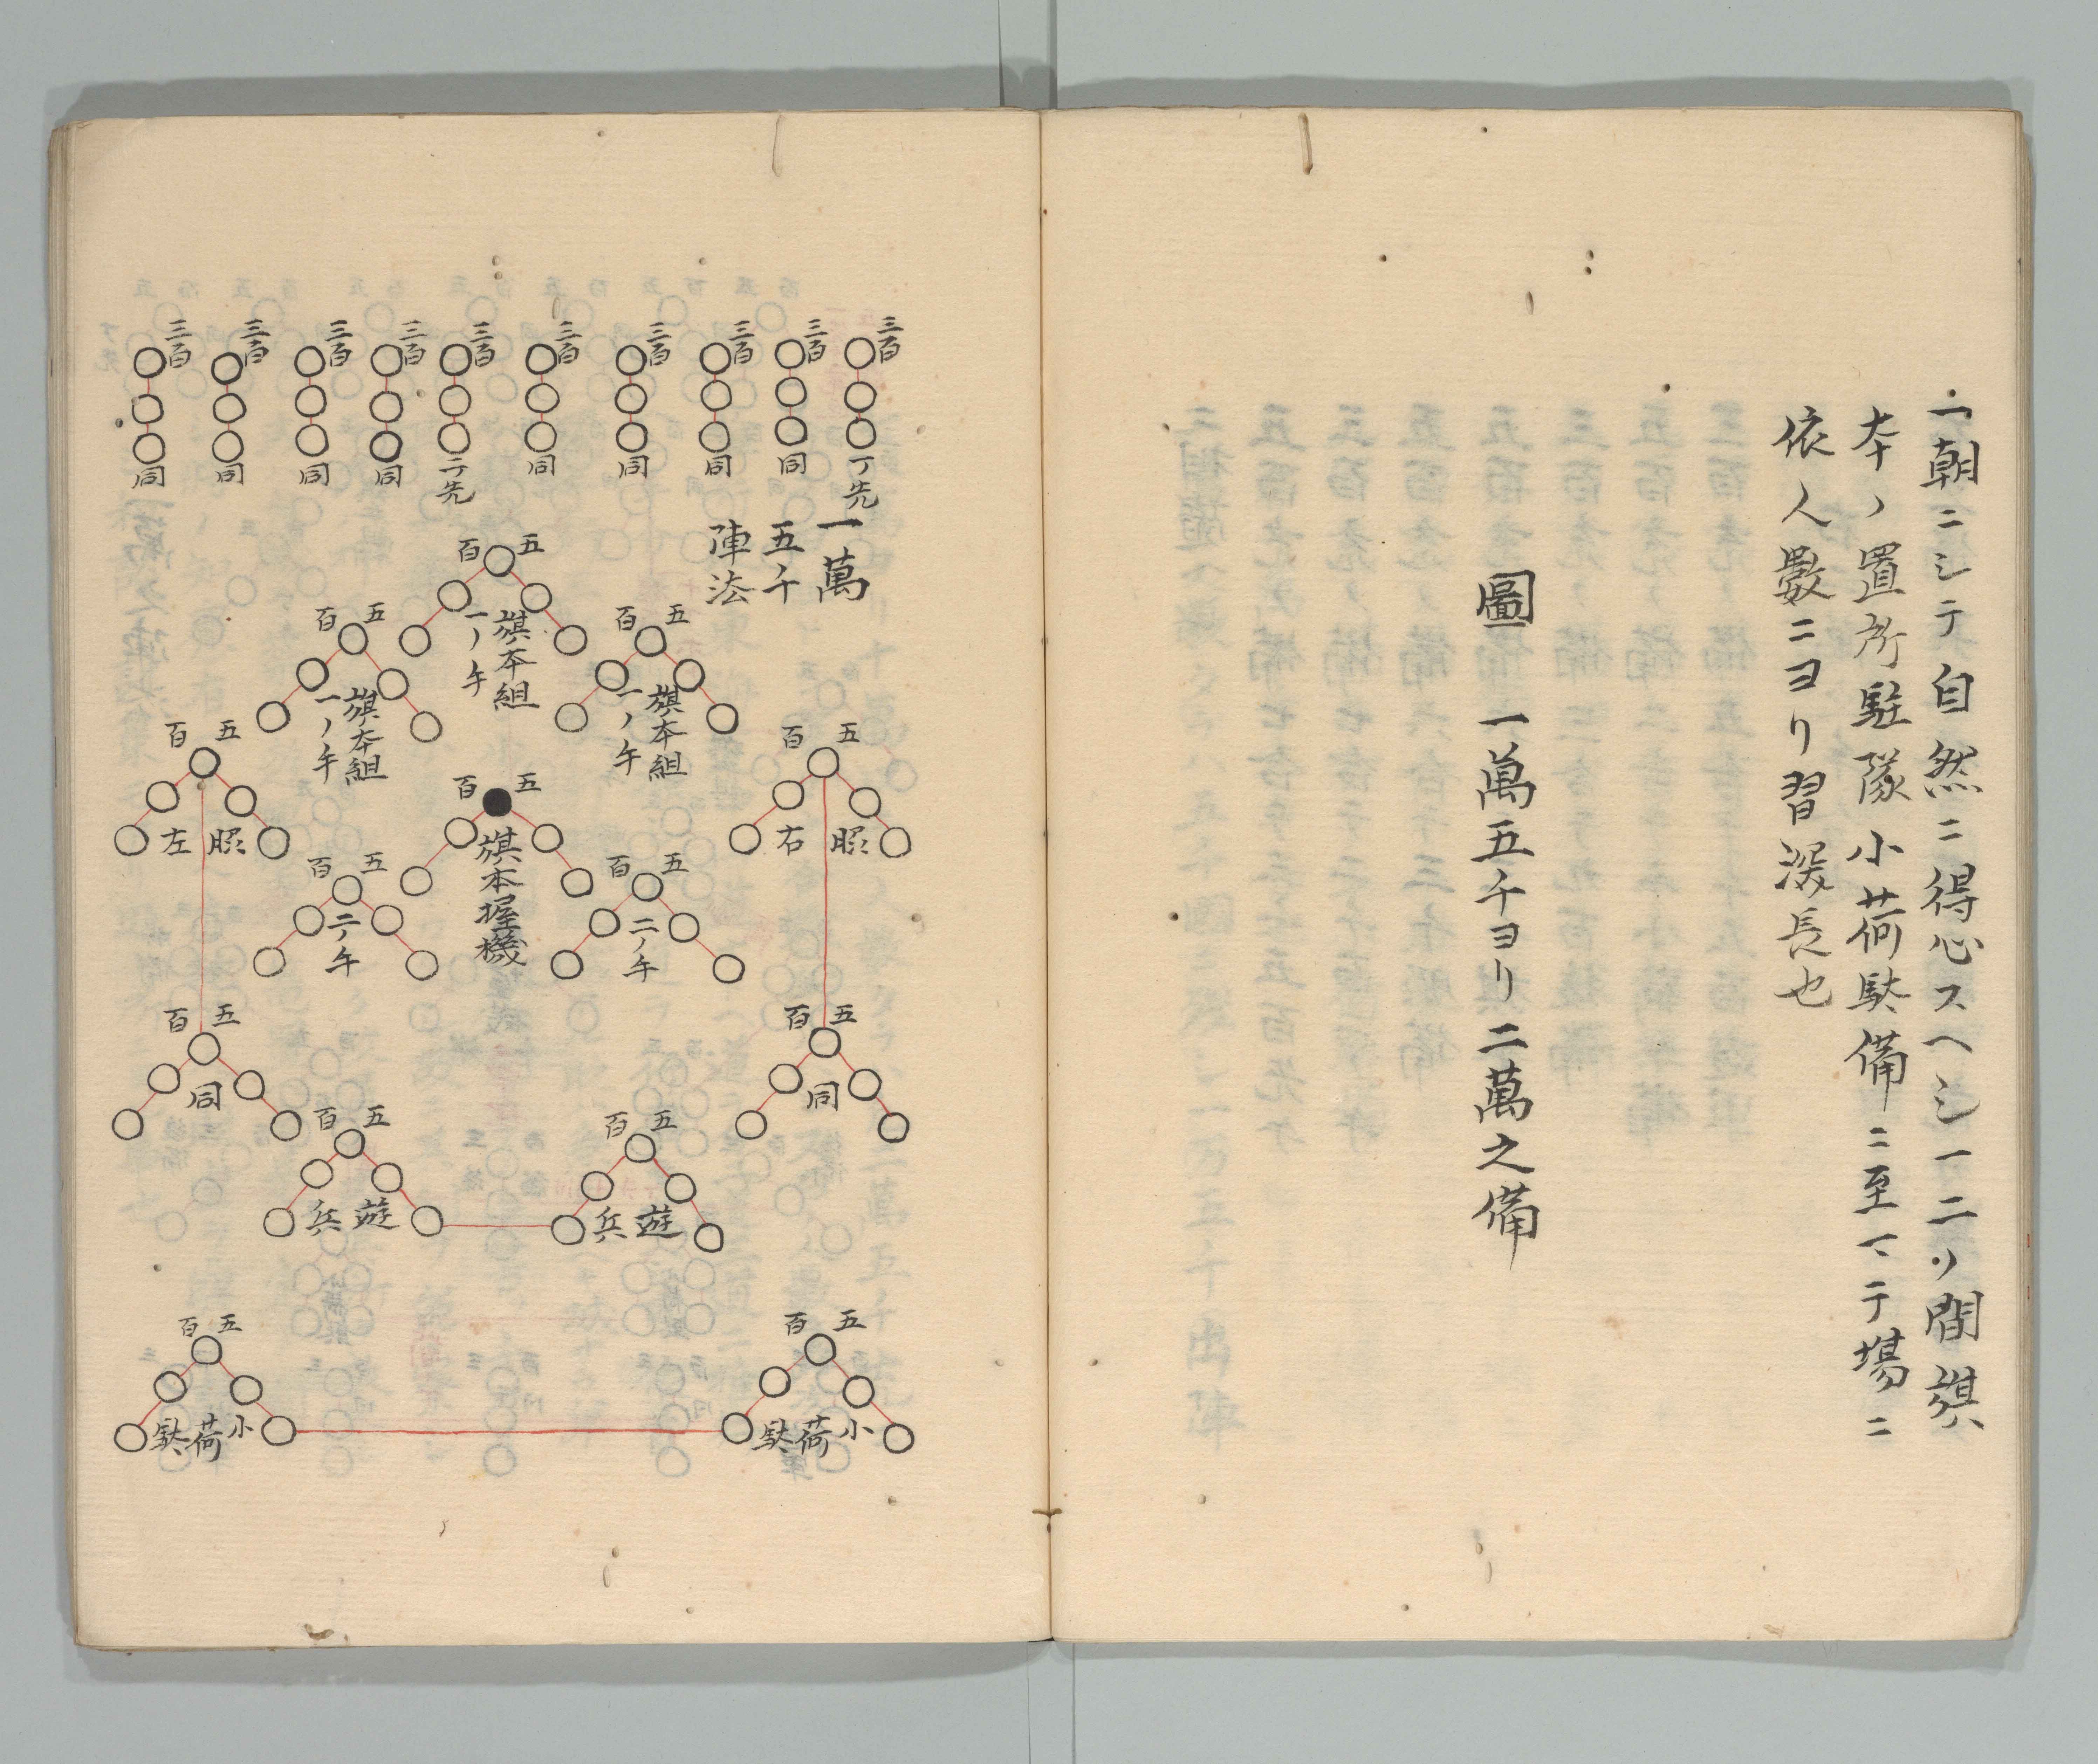 一朝ニシテ自然ニ得心スヘシ一二ノ間旗
本ノ置所駐隊小荷駄備ニ至マテ場ニ
依人數ニヨリ習深長也
圖 一萬五千ヨリ二萬之備
三百 一先
三百 同
三百 同
三百 同
三百 同
三百 二先
三百 同
三百 同
三百 同
三百 同
一萬
五千
陣法
五百 旗本組 一ノ手
五百 旗本組 一ノ手
五百 旗本組 一ノ手
五百 右照
五百 旗本握機
五百 左照
五百 二ノ手
五百 二ノ手
五百 同
五百 同
五百 遊兵
五百 遊兵
五百 小荷駄
五百 小荷駄